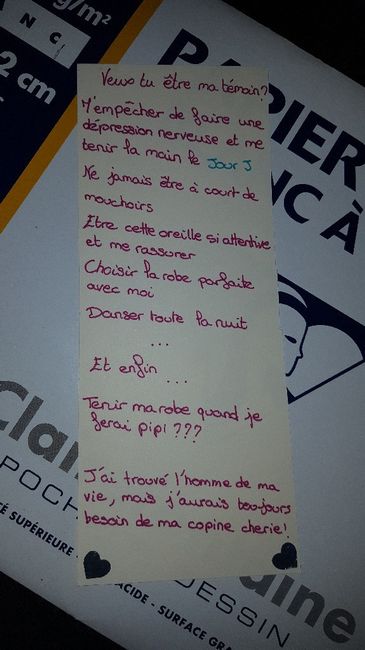 g/m²
N G
2 cm
PAPIER
NC À
Veux tu être ma témoin?
M'empêcher de faire une
dépression nerveuse et me
tenir la main le Jour J
Ne jamais être à court de
mouchoirs
Etre cette oreille si attentive
et me rassurer
Choisir la robe parfaite
avec moi
Danser toute la nuit
...
Et enfin
...
Tenir ma robe quand je
ferai pipi ???
J'ai trouvé l'homme de ma
vie, mais j'aurais toujours
besoin de ma copine cherie!
Clai
aine
POCH
DESSIN
SUPÉRIEURE
ACIDE - SURFACE GRA